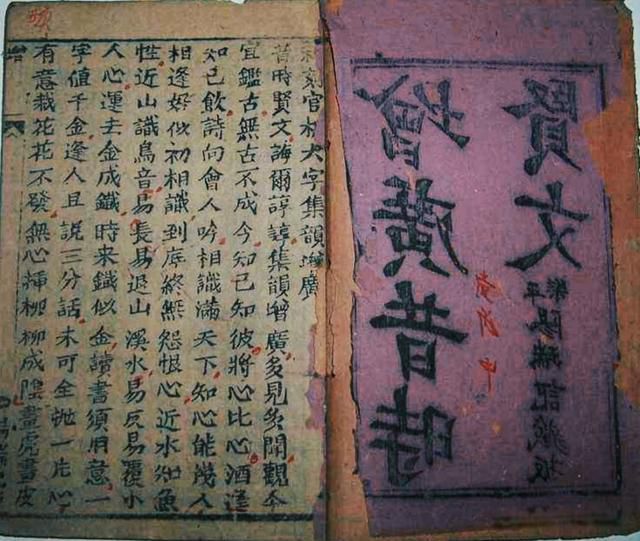 增廣昔時
賢文
新刻官板大字集韻增廣
昔時賢文誨爾諄諄集韻增廣多見多聞觀今
宜鑑古無古不成今知己知彼將心比心酒逢
知己飲詩向會人吟相識滿天下知心能幾人
相逢好似初相識到底終無怨恨心近水知魚
性近山識鳥音易長易退山溪水易反易覆小
人心運去金成鐵時来鐵似金讀書須用意一
字值千金逢人且說三分話未可全抛一片心
有意栽花花不發無心挿柳柳成陰畫虎畫皮